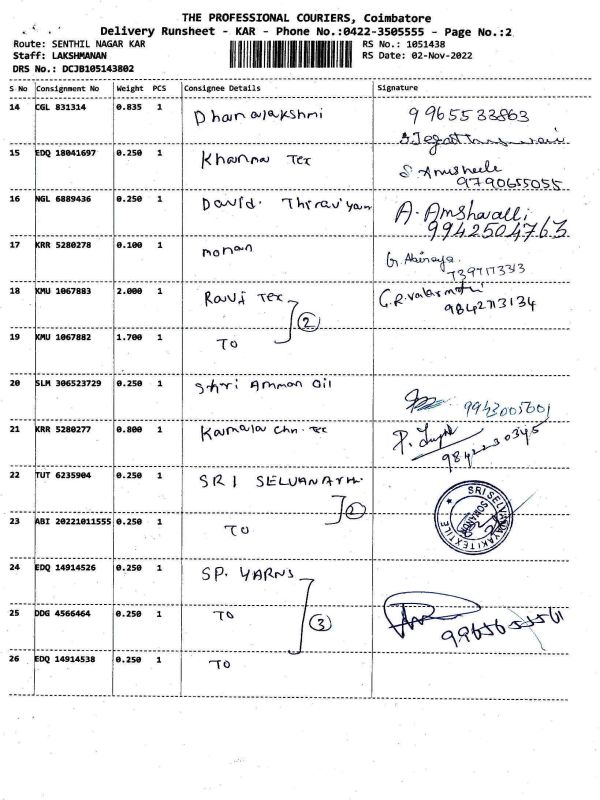 THE PROFESSIONAL COURIERS, Coimbatore
Delivery Runsheet - KAR - Phone No.:0422-3505555 - Page No.:2
Route: SENTHIL NAGAR KAR RS No.: 1051438
Staff: LAKSHMANAN RS Date: 02-Nov-2022
DRS No.: DCJB105143802
S No Consignment No Weight PCS Consignee Details Signature
14 CGL 831314 0.835 1 Dhanalakshmi 9965533863
15 EDQ 18041697 0.250 1 Khanna Tex S. Anusheele
9790655055
16 NGL 6889436 0.250 1 David. Thiraviyam A. Amshavalli
9942504763
17 KRR 5280278 0.100 1 mohan G. Abinaya
7397173313
18 KMU 1067883 2.000 1 Ravi Tex 2 G.R.valarmathi
9842713134
19 KMU 1067882 1.700 1 TO
20 SLM 306523729 0.250 1 Shri Amman Oil 9943005601
21 KRR 5280277 0.800 1 Kamala Chn. Tex
9842230345
22 TUT 6235904 0.250 1 SRI SELVANAYA 2 SRI SELVANAYAKI TEXTILE
23 ABI 20221011555 0.250 1 TO
24 EDQ 14914526 0.250 1 SP. YARNS
25 DDG 4566464 0.250 1 TO 3
26 EDQ 14914538 0.250 1 TO